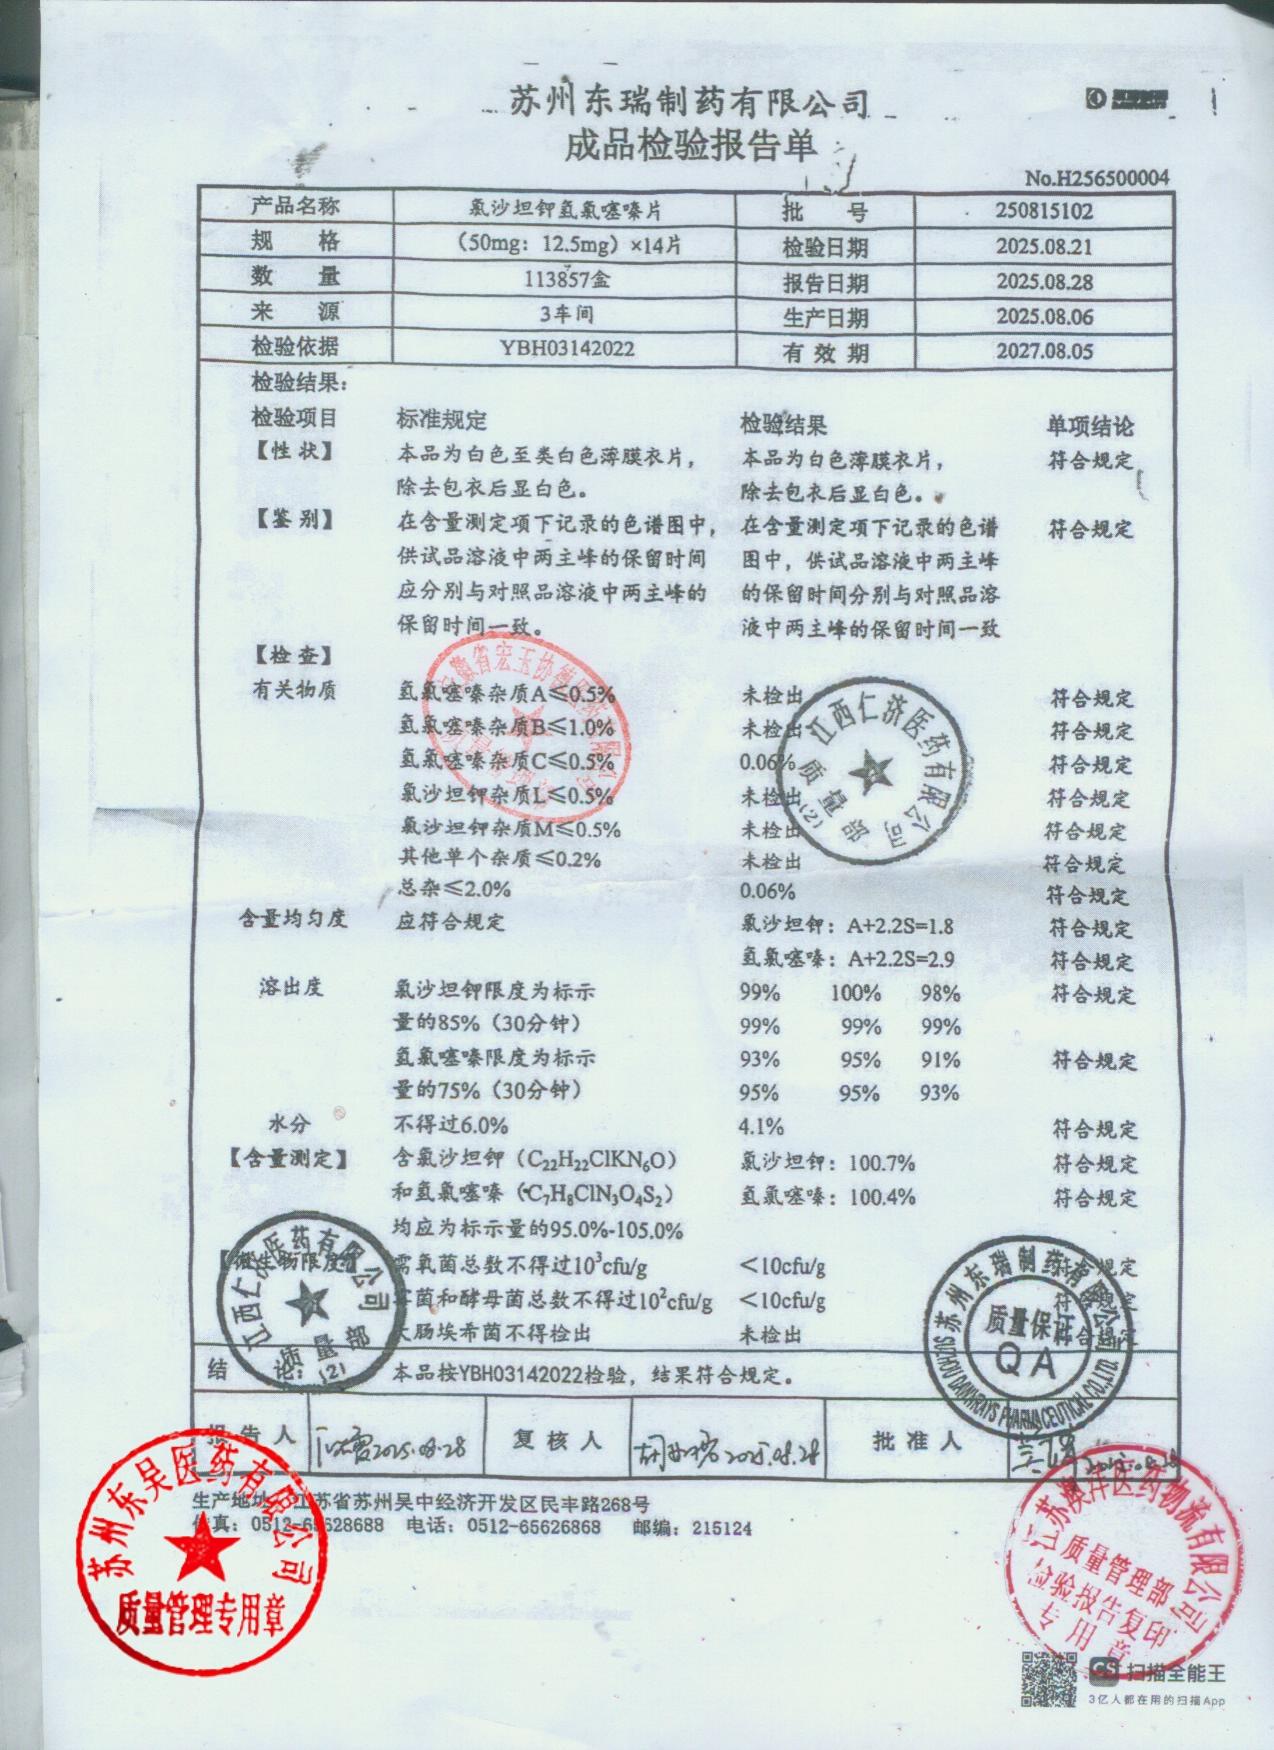 苏州东瑞制药有限公司
成品检验报告单
No.H256500004
产品名称 氯沙坦钾氢氯噻嗪片 批 号 250815102
规 格 (50mg：12.5mg）×14片 检验日期 2025.08.21
数 量 113857盒 报告日期 2025.08.28
来 源 3车间 生产日期 2025.08.06
检验依据 YBH03142022 有 效 期 2027.08.05
检验结果：
检验项目 标准规定 检验结果 单项结论
【性 状】 本品为白色至类白色薄膜衣片， 本品为白色薄膜衣片， 符合规定
除去包衣后显白色。 除去包衣后显白色。
【鉴 别】 在含量测定项下记录的色谱图中， 在含量测定项下记录的色谱 符合规定
供试品溶液中两主峰的保留时间 图中，供试品溶液中两主峰
应分别与对照品溶液中两主峰的 的保留时间分别与对照品溶
保留时间一致。 液中两主峰的保留时间一致
【检 查】
有关物质 氢氯噻嗪杂质A≤0.5% 未检出 符合规定
氢氯噻嗪杂质B≤1.0% 未检出 符合规定
氢氯噻嗪杂质C≤0.5% 0.06% 符合规定
氯沙坦钾杂质L≤0.5% 未检出 符合规定
氯沙坦钾杂质M≤0.5% 未检出 符合规定
其他单个杂质≤0.2% 未检出 符合规定
总杂≤2.0% 0.06% 符合规定
含量均匀度 应符合规定 氯沙坦钾：A+2.2S=1.8 符合规定
氢氯噻嗪：A+2.2S=2.9 符合规定
溶出度 氯沙坦钾限度为标示 99% 100% 98% 符合规定
量的85%（30分钟） 99% 99% 99%
氢氯噻嗪限度为标示 93% 95% 91% 符合规定
量的75%（30分钟） 95% 95% 93%
水分 不得过6.0% 4.1% 符合规定
【含量测定】 含氯沙坦钾（C₂₂H₂₂ClKN₆O） 氯沙坦钾：100.7% 符合规定
和氢氯噻嗪（C₇H₈ClN₃O₄S₂） 氢氯噻嗪：100.4% 符合规定
均应为标示量的95.0%-105.0%
【微生物限度】 需氧菌总数不得过10³cfu/g ＜10cfu/g 符合规定
霉菌和酵母菌总数不得过10²cfu/g ＜10cfu/g 符合规定
大肠埃希菌不得检出 未检出 符合规定
结 论： 本品按YBH03142022检验，结果符合规定。
报 告 人 2025.08.28 复 核 人 2025.08.28 批 准 人
生产地址：江苏省苏州吴中经济开发区民丰路268号
传真：0512-65628688 电话：0512-65626868 邮编：215124
江西仁济医药有限公司
质量部
(2)
江西仁济医药有限公司
质量部
(2)
苏州东瑞制药有限公司
质量保证
QA
SUZHOU DAWNRAYS PHARMACEUTICAL CO.,LTD.
苏州东吴医药有限公司
质量管理专用章
医药物流有限公司
质量管理部
检验报告复印
专用章
CS 扫描全能王
3亿人都在用的扫描App